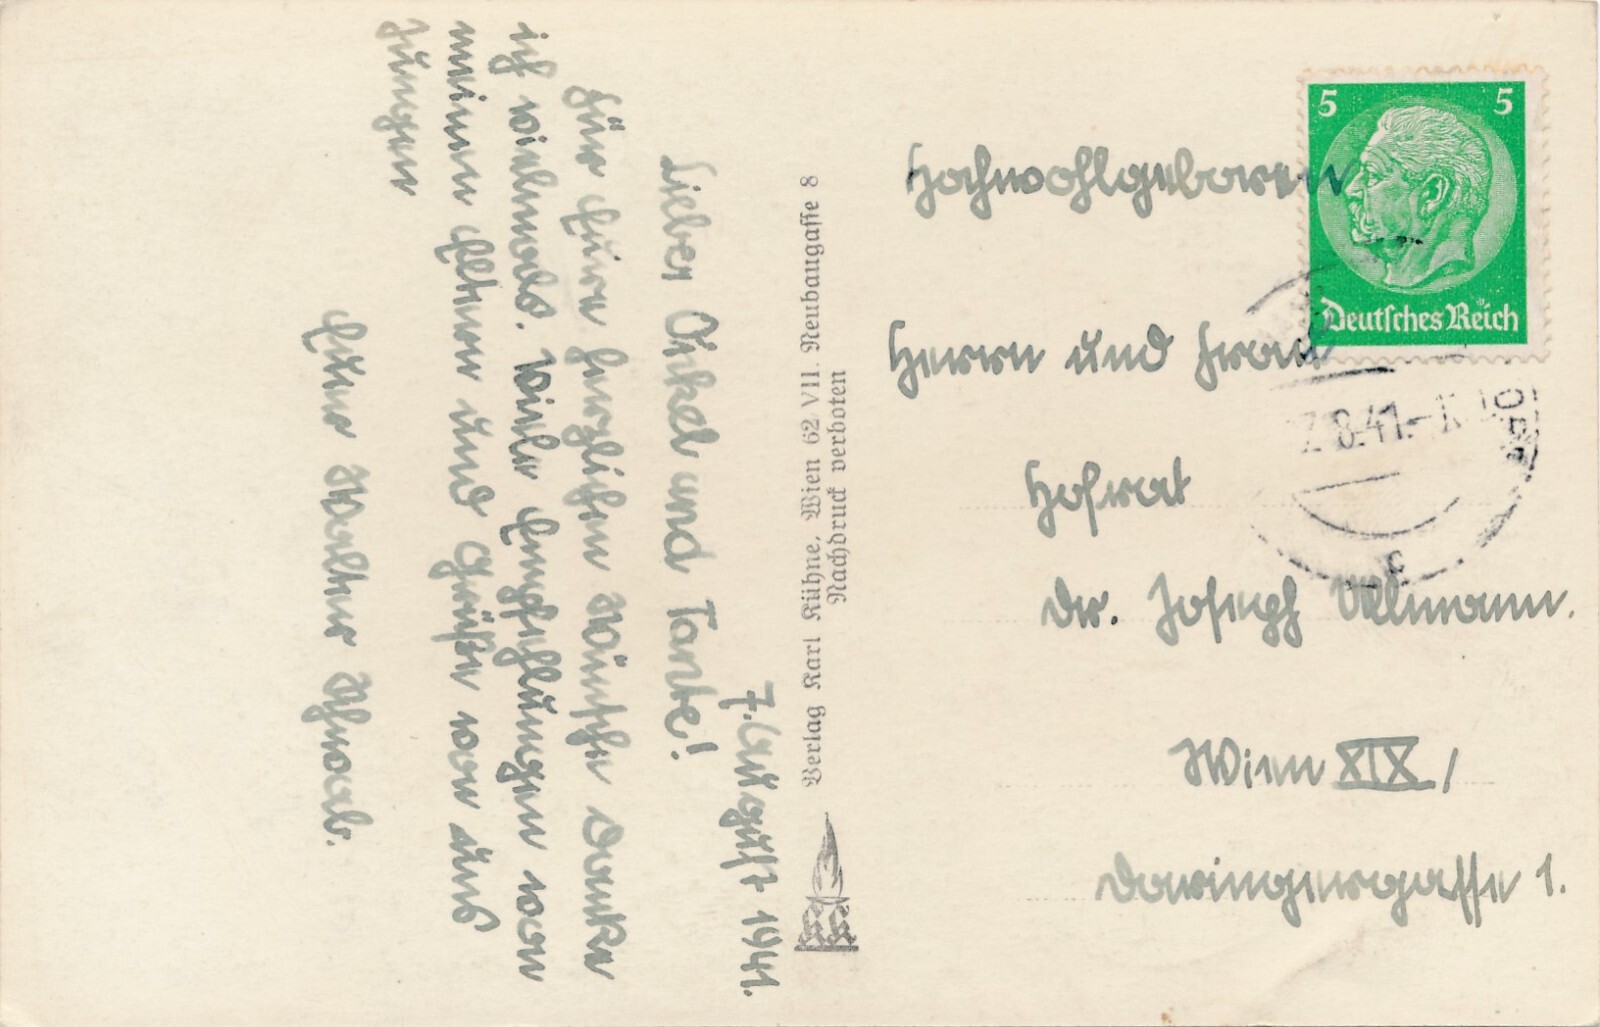 7. August 1941.
Lieber Onkel und Tante!
Für Eure herzlichen Wünsche danke
ich vielmals. Viele Empfehlungen von
meinen Eltern und Grüße von uns
Jungen
Euer Walter Schwab.
Verlag Karl Kühne, Wien 62 VII. Neubaugasse 8
Nachdruck verboten
KK
Hochwohlgeboren
Herrn und Frau
Hofrat
Dr. Joseph Ullmann.
Wien XIX/
Daringergasse 1.
5 5
Deutsches Reich
8.41.